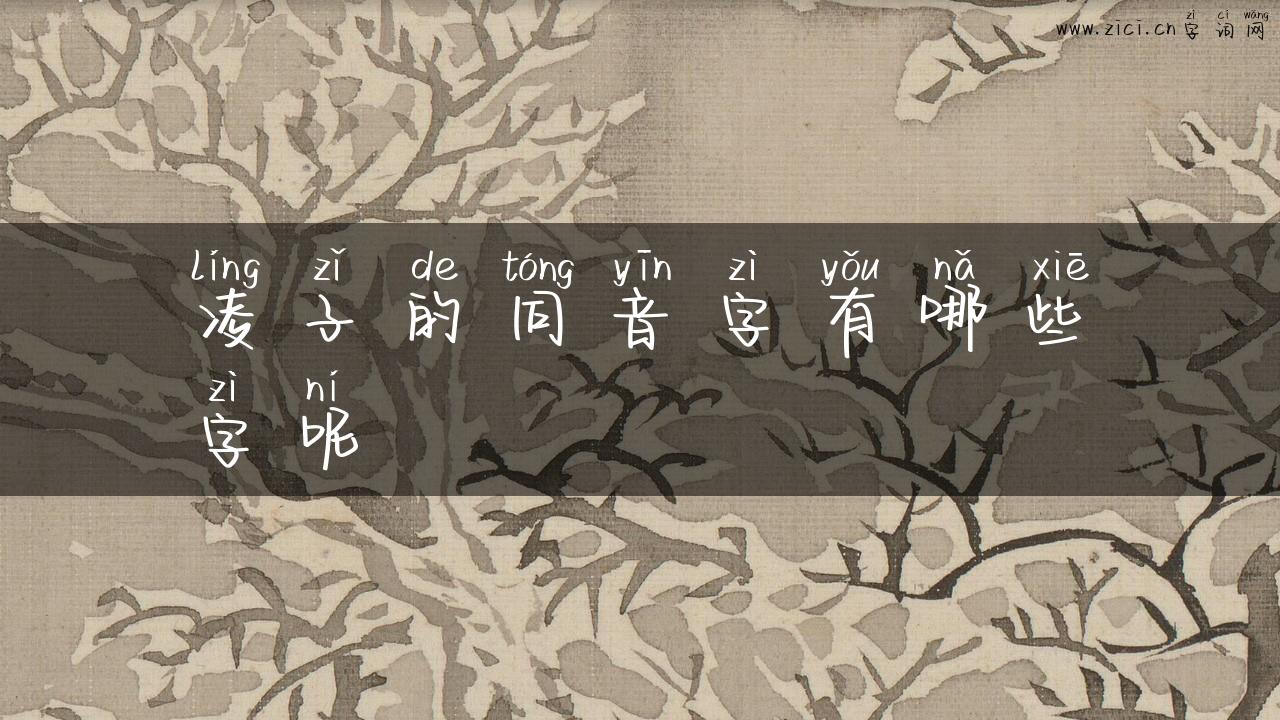 zì cí wǎng
www.zici.cn字词网
líng zǐ de tóng yīn zì yǒu nǎ xiē
凌子的同音字有哪些
zì ní
字呢